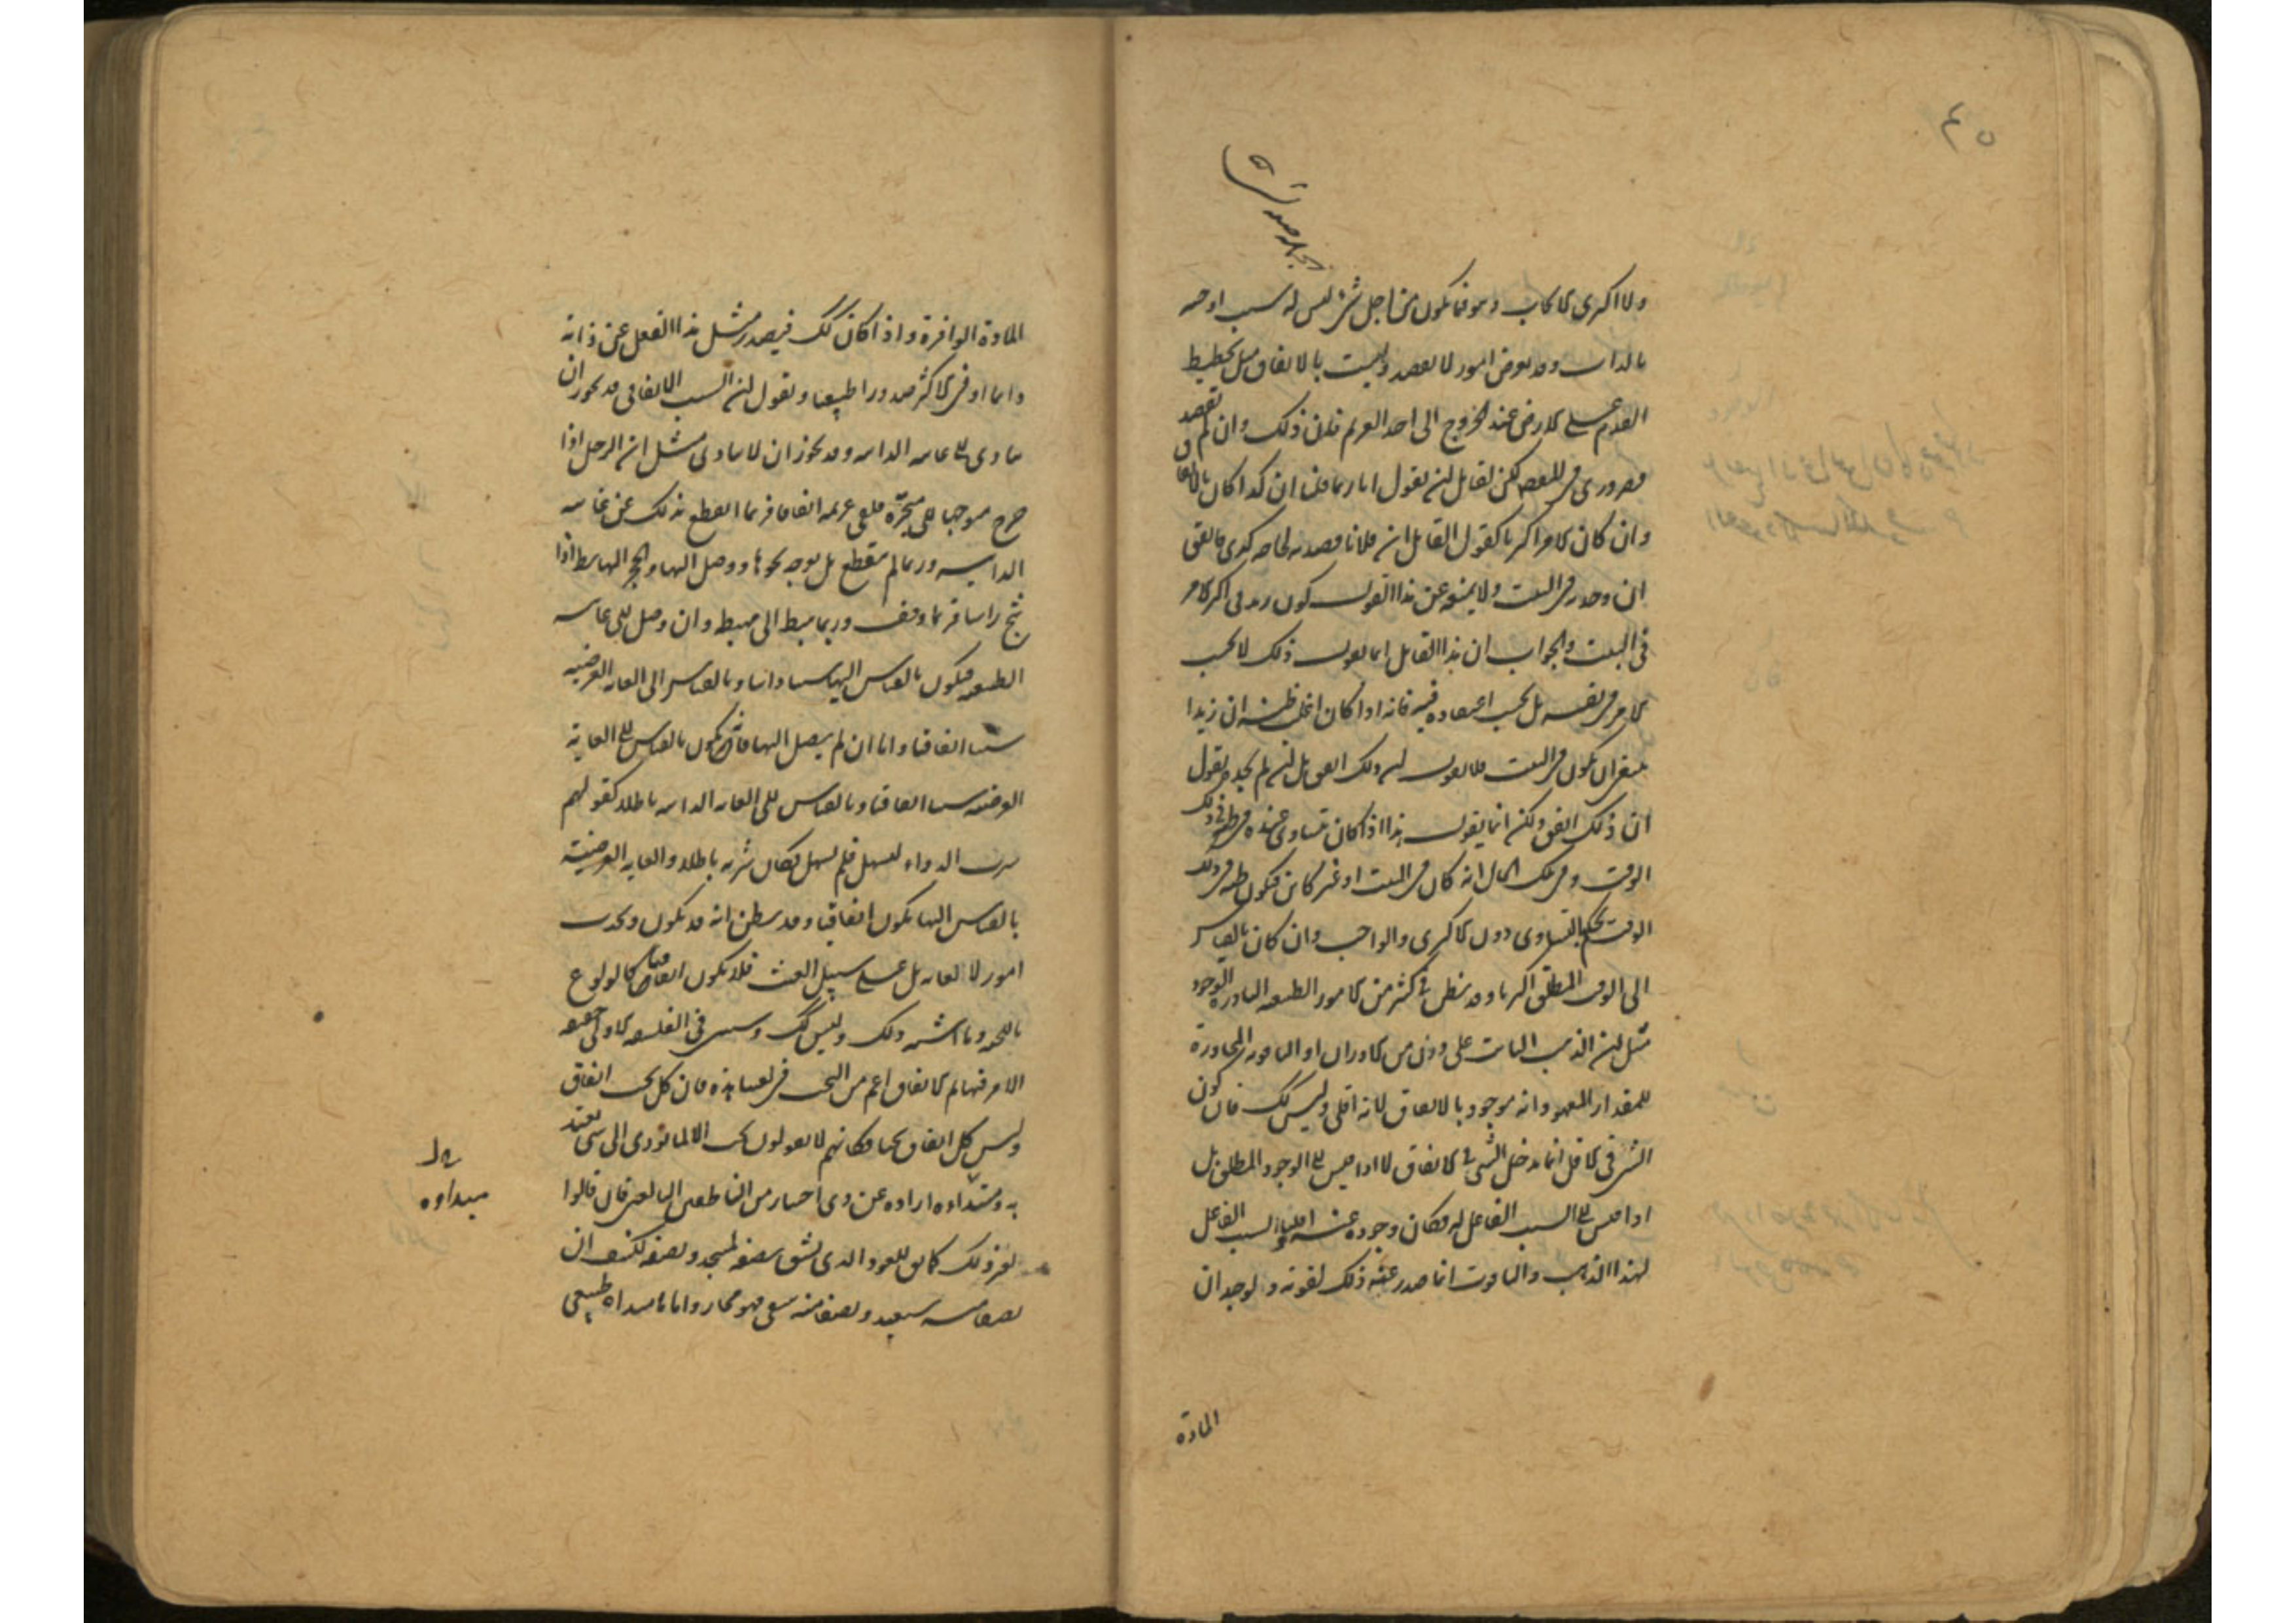 ٤٥
ولا اكثرى الايجاب وهو فيما يكون من اجل شئ ليس له سبب اوجبه
بالذات وقد يعرض امور لا بقصد وليست بالاتفاق مثل تخطيط
القدم على الارض عند الخروج الى اخذ الغريم فان ذلك وان لم يقصد
فضرورى فى المقصود لكن لقائل ان يقول انا ربما قلنا ان كذا كان بالاتفاق
وان كان الامر اكثريا كقول القائل ان فلانا قصدته لحاجة كذى فاتفق
ان وجدته فى البيت ولا يمنعه عن هذا القول كون زيد فى اكثر الامر
فى البيت والجواب ان هذا القائل انما يقول ذلك لا بحسب
الامر فى نفسه بل بحسب اعتقاده فيه فانه اذا كان اغلب ظنه ان زيدا
ينبغى ان يكون فى البيت فلا يقول ان ذلك اتفق بل ان لم يجده يقول
ان ذلك اتفق ولكن انما يقول هذا اذا كان يتساوى عنده فى ظنه فى ذلك
الوقت وفى تلك الحال انه كان فى البيت او غير كائن فيكون ظنه فى ذلك
الوقت يحكم بالتساوى دون الاكثرى والواجب وان كان بالقياس
الى الوقت المطلق اكثريا وقد يظن فى كثير من الامور الطبيعية النادرة الوجود
مثل ان الذهب النابت على وزن من الاوزان او الياقوت المجاوزة
للمقدار المعهود انه موجود بالاتفاق لانه اقلى وليس كك فان كون
الشئ فى الاقل انما يدخل الشئ فى الاتفاق لا اذا قيس الى الوجود المطلق بل
اذا قيس الى السبب الفاعل له فكان وجوده عنه اقليا والسبب الفاعل
لهذا الذهب والياقوت انما صدر عنه ذلك لقوته ولوجدان
المادة
المادة الوافرة واذا كان كك فيصدر مثل هذا الفعل عن ذاته
دايما او فى الاكثر صدورا طبيعيا ونقول ان السبب الاتفاقى قد يجوز ان
يتادى الى غايته الذاتية وقد يجوز ان لا يتادى مثل ان الرجل اذا
خرج متوجها الى متجره فلقى غريمه اتفاقا فربما انقطع بذلك عن غايته
الذاتية وربما لم ينقطع بل توجه نحوها ووصل اليها والحجر الهابط اذا
شج راسا فربما وقف وربما هبط الى مهبطه وان وصل الى غايته
الطبيعية فيكون بالقياس اليها سببا ذاتيا وبالقياس الى الغاية العرضية
سببا اتفاقيا واما ان لم يصل اليها فانه يكون بالقياس الى الغاية
العرضية سببا اتفاقيا وبالقياس الى الغاية الذاتية باطلا كقولهم
شرب الدواء ليسهل فلم يسهل فكان شربه باطلا والغاية العرضية
بالقياس اليها يكون اتفاقيا وقد يظن انه قد يكون ويحدث
امور لا لغاية بل على سبيل العبث فلا يكون اتفاقا كالولوع
باللحية وما اشبه ذلك وليس كك وسيبين فى الفلسفة الاولى حقيقة
الامر فيها ثم الاتفاق اعم من البخت فى لغتنا هذه فان كل بخت اتفاق
وليس كل اتفاق بختا فكانهم لا يقولون بخت الا لما يؤدى الى شئ يعتد
به ومبداوه ارادة عن ذى اختيار من الناطقين البالغين فان قالوا
لغير ذلك كما يق للعود الذى يشق نصفه لمسجد ونصفه لكنيف ان
نصفا منه سعيد ونصفا منه شقى فهو مجاز واما ما مبداه طبيعى
مبداوه